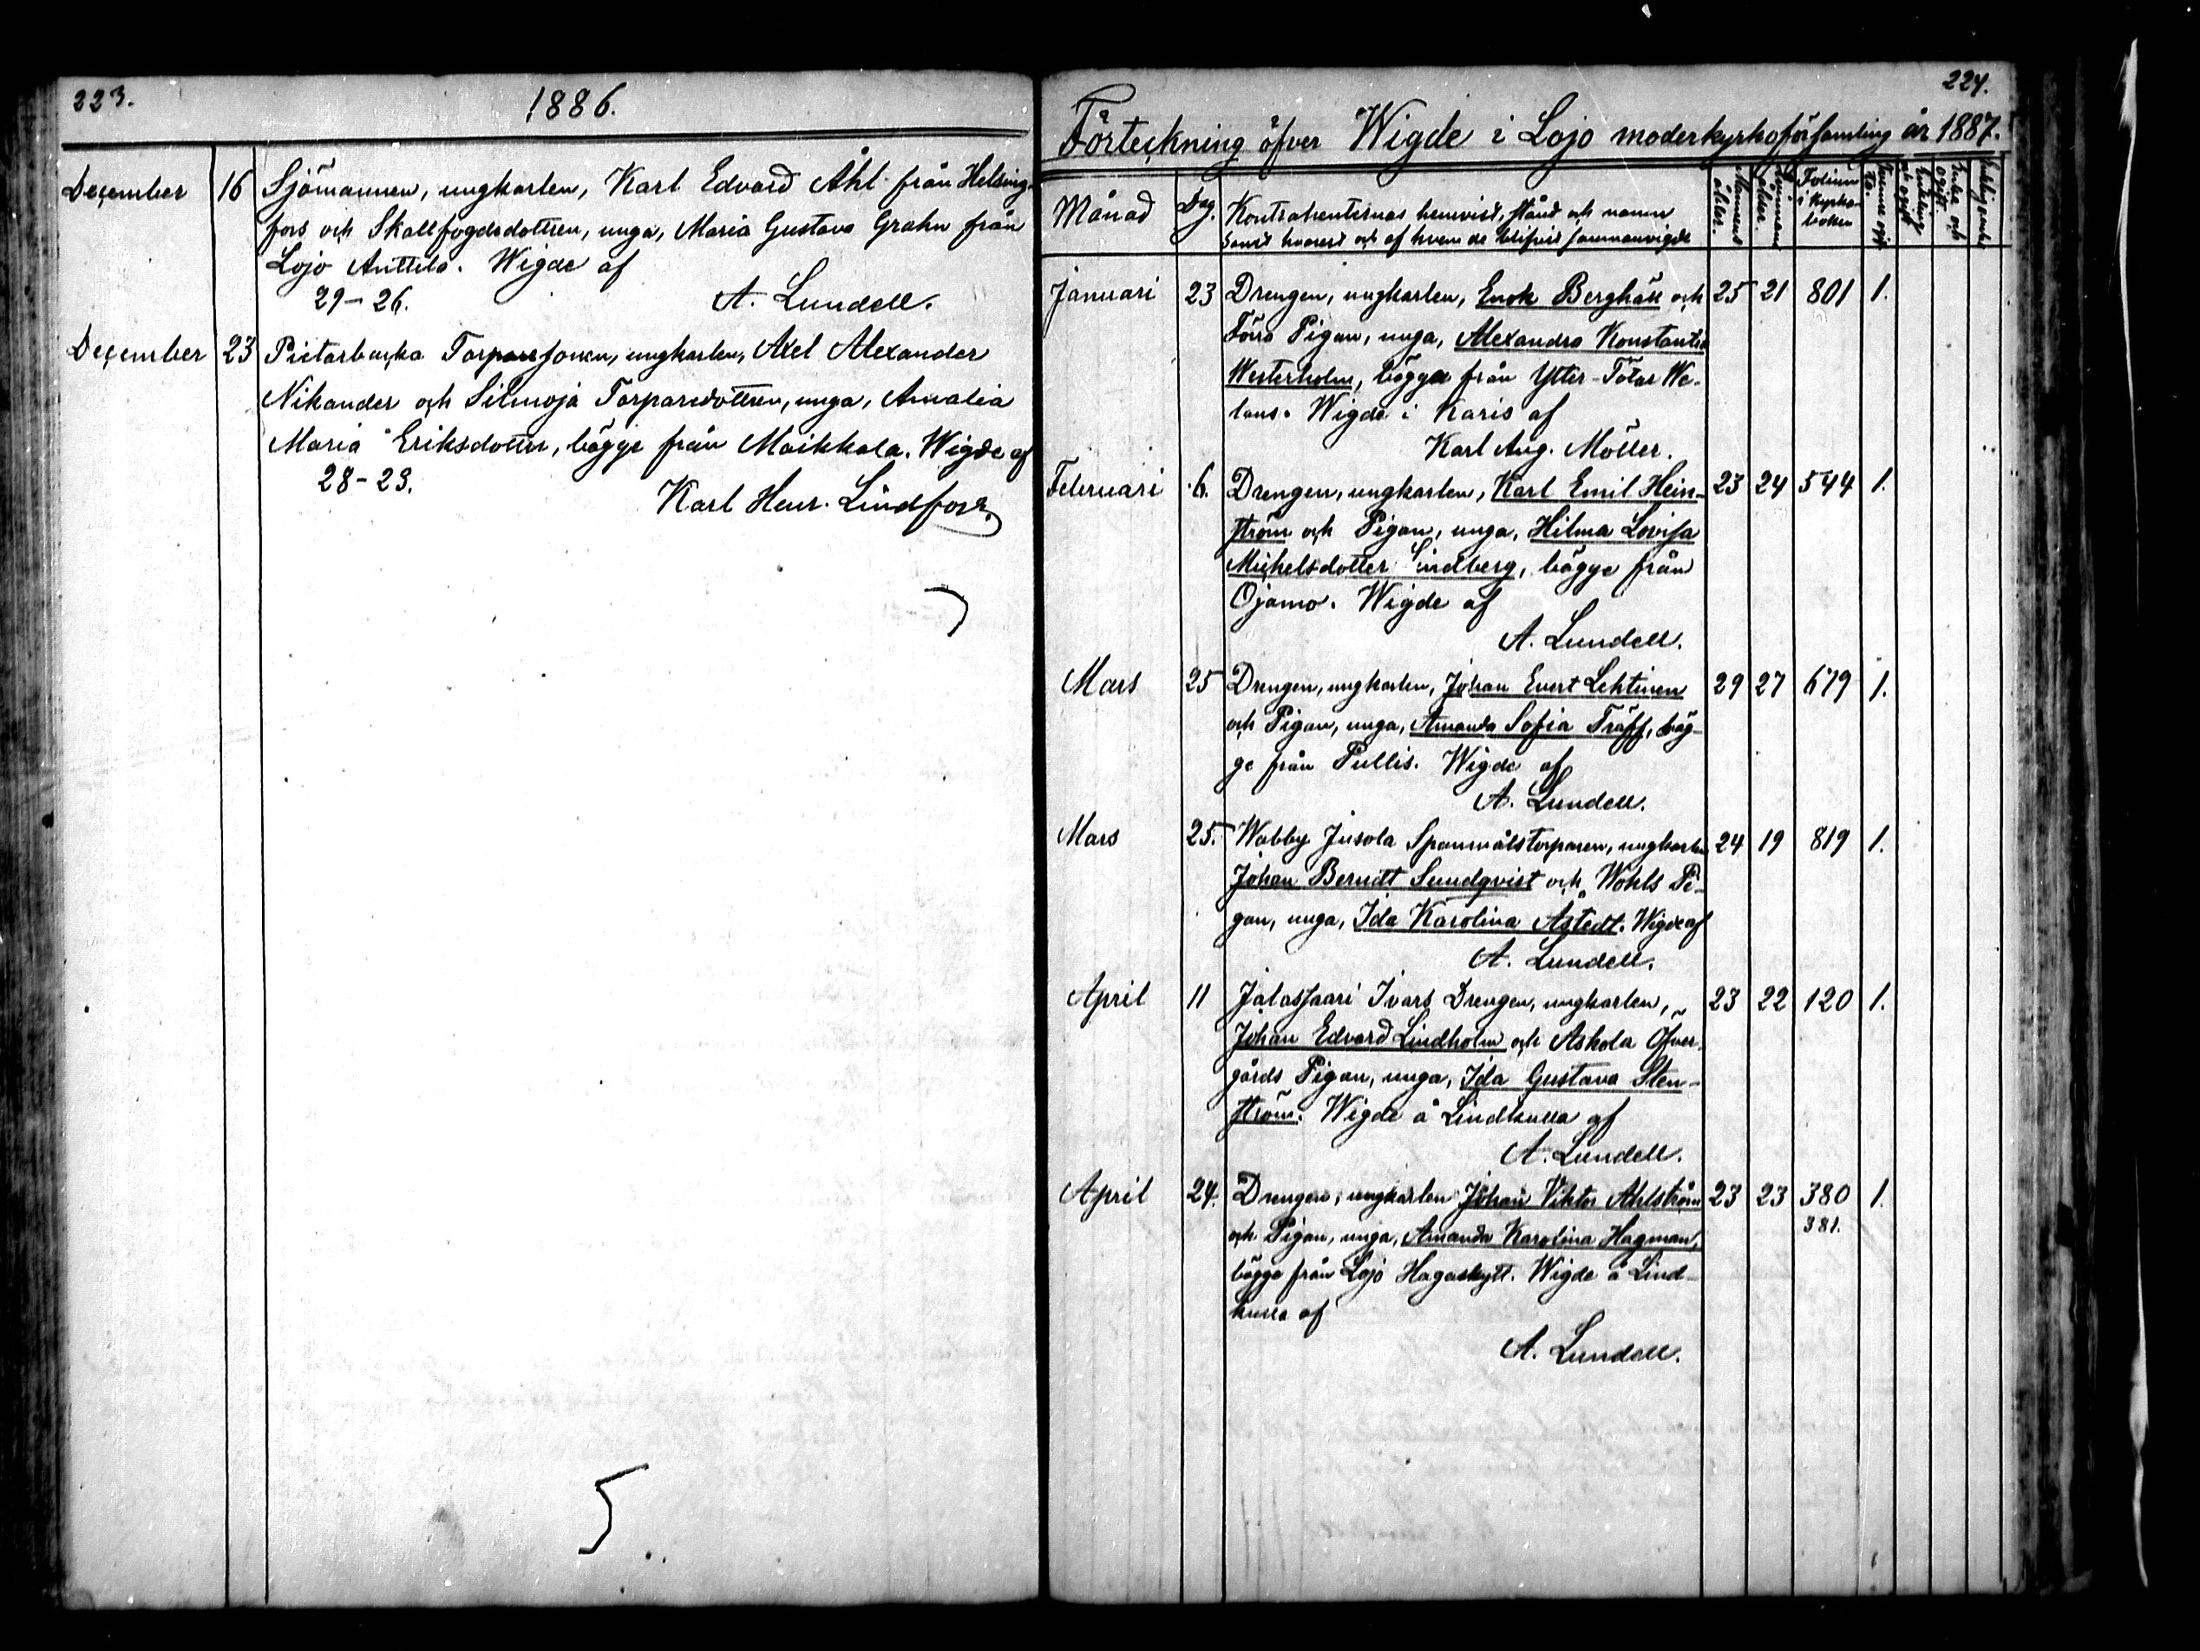 223.
1886.
December 16 Sjömannen, ungkarlen, Karl Edvard Åhl från Helsing-
fors och Skallfogdedottren, unga, Maria Gustava Grahn från
Lojo Anttila. Wigde af
29-26. A. Lundell.
December 23 Pietarbacka Torparesonen, ungkarlen, Axel Alexander
Nikander och Silmoja Torparedottren, unga, Amalia
Maria Eriksdotter, bägge från Maikkala. Wigde af
28-23. Karl Henr. Lindfors.
5
224.
Förteckning öfver Wigde i Lojo moderkyrkoförsamling år 1887.
Månad Dag. Kontrahenternas hemvist, stånd och namn Mannens ålder. Qvinnans ålder. Folium i kyrkoboken
samt hvarest och af hvem de blifvit sammanvigde
Januari 23 Drengen, ungkarlen, Enok Berghäll och 25 21 801 1.
Förra Pigan, unga, Alexandra Konstantia
Westerholm, bägge från Ytter-Tötar We-
lans. Wigde i Karis af
Karl Aug. Möller.
Februari 6. Drengen, ungkarlen, Karl Emil Hein- 23 24 544 1.
ström och Pigan, unga, Hilma Lovisa
Michelsdotter Lindberg, bägge från
Ojamo. Wigde af
A. Lundell.
Mars 25 Drengen, ungkarlen, Johan Evert Lehtinen 29 27 679 1.
och Pigan, unga, Amanda Sofia Träff, bäg-
ge från Pullis. Wigde af
A. Lundell.
Mars 25. Wabby Jusola Spanmålstorparen, ungkarlen 24 19 819 1.
Johan Berndt Sundqvist och Wohls Pi-
gan, unga, Ida Karolina Åstedt. Wigde af
A. Lundell.
April 11 Jalassaari Ivars Drengen, ungkarlen, 23 22 120 1.
Johan Edvard Lindholm och Askola Öfver-
gårds Pigan, unga, Ida Gustava Sten-
ström. Wigde å Lindkulla af
A. Lundell.
April 24. Drengen, ungkarlen Johan Viktor Ahlström 23 23 380 1.
381.
och Pigan, unga, Amanda Karolina Hagman,
bägge från Lojo Hagaskytt. Wigde å Lind-
kulla af
A. Lundell.